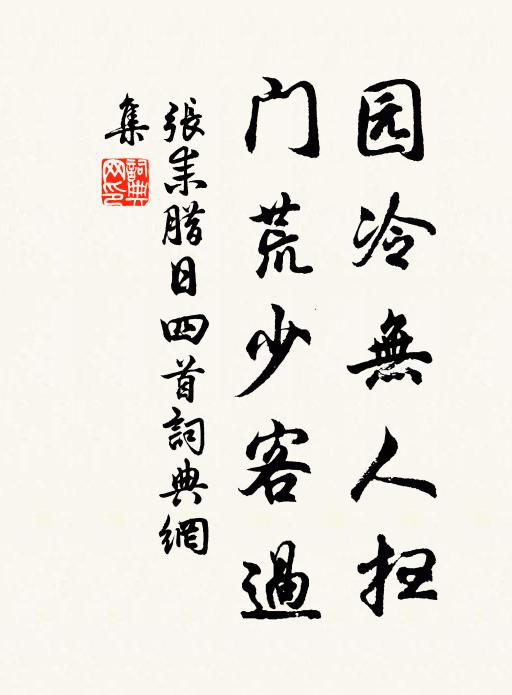 园冷無人扫
门荒少客過
張耒腊日四首詞典網
集
詞典
网印